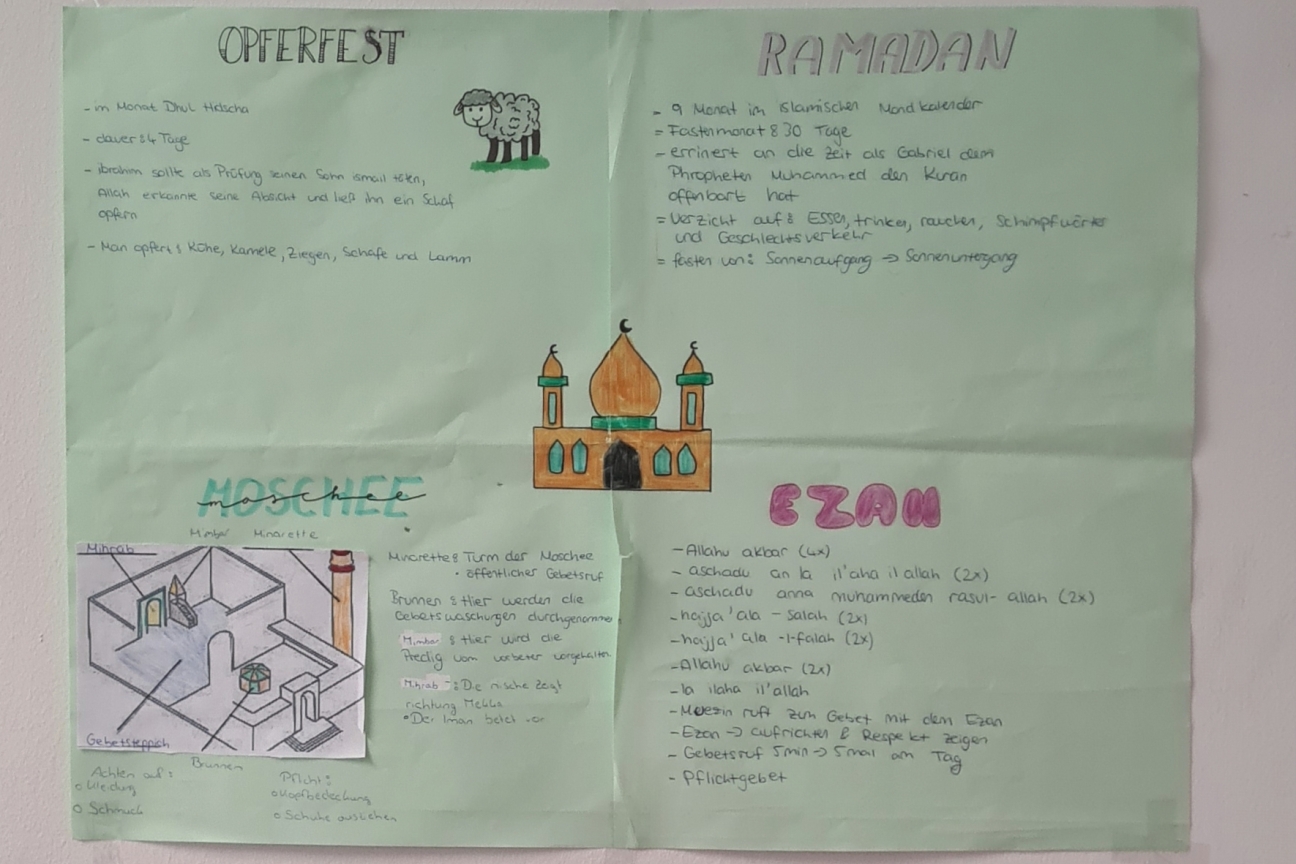 OPFERFEST
- im Monat Dhul Hidscha
- dauer: 4 Tage
- ibrahim sollte als Prüfung seinen Sohn ismail töten,
Allah erkannte seine Absicht und ließ ihn ein Schaf
opfern
- Man opfert: Kühe, Kamele, Ziegen, Schafe und Lamm
RAMADAN
- 9 Monat im islamischen Mondkalender
= Fastenmonat: 30 Tage
- errinert an die Zeit als Gabriel dem
Phropheten Muhammed den Kuran
offenbart hat
= Verzicht auf: Essen, trinken, rauchen, Schimpfwörter
und Geschlechtsverkehr
= fasten von: Sonnenaufgang → Sonnenuntergang
MOSCHEE
moschee
Mimbar Minarette
Mihrab
Gebetsteppich
Brunnen
Minarette: Turm der Moschee
• öffentlicher Gebetsruf
Brunnen: Hier werden die
Gebetswaschungen durchgenommen
Mimbar: Hier wird die
Predig vom vorbeter vorgehalten
Mihrab -: Die nische zeigt
richtung Mekka
• Der Iman betet vor
Achten auf:
o Kleidung
o Schmuck
Pflicht:
o Kopfbedeckung
o Schuhe ausziehen
EZAN
- Allahu akbar (4x)
- aschadu an la il'aha il allah (2x)
- aschadu anna muhammeden rasul- allah (2x)
- hajja 'ala - salah (2x)
- hajja' ala -l-falah (2x)
- Allahu akbar (2x)
- la ilaha il'allah
- Muezin ruft zum Gebet mit dem Ezan
- Ezan → aufrichten & Respekt zeigen
- Gebetsruf 5min → 5mal am Tag
- Pflichtgebet